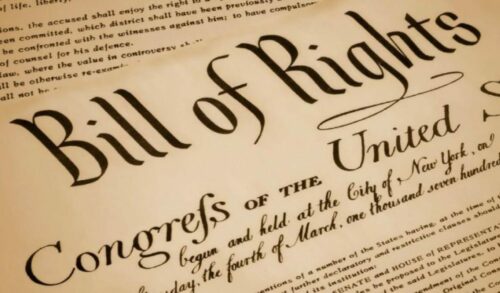 of life, liberty,
ions, the accused shall enjoy the right to a
een committed, which district shall have been previously
be confronted with the witnesses against him; to have compulsory
of counsel for his defence.
law, where the value in controversy shall
ll be otherwise re-exam
all not be
Bill of Rights
Congreſs OF THE United S
begun and held at the City of New York, on
day, the fourth of March, one thousand seven hundred
ntions of a number of the States having, at the time of
further declaratory and restrictive clauses should
its institution:
SENATE and HOUSE of REPRESENTAT
be proposed to the Legislatures
the said Legislatures,